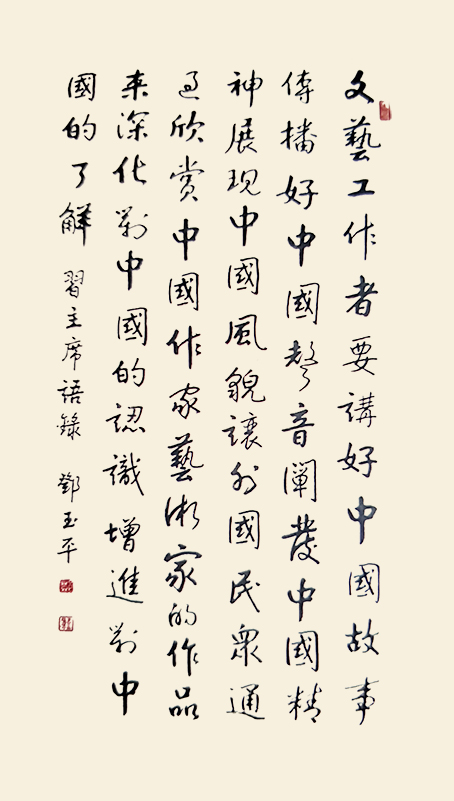 文藝工作者要講好中國故事
傳播好中國聲音闡發中國精
神展現中國風貌讓外國民衆通
過欣賞中國作家藝術家的作品
来深化對中國的認識增進對中
國的了解 習主席語錄 鄧玉平